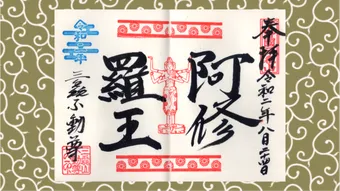 奉拝
令和二年八月二十四日
阿修
羅王
令和二年
三蔵不動尊